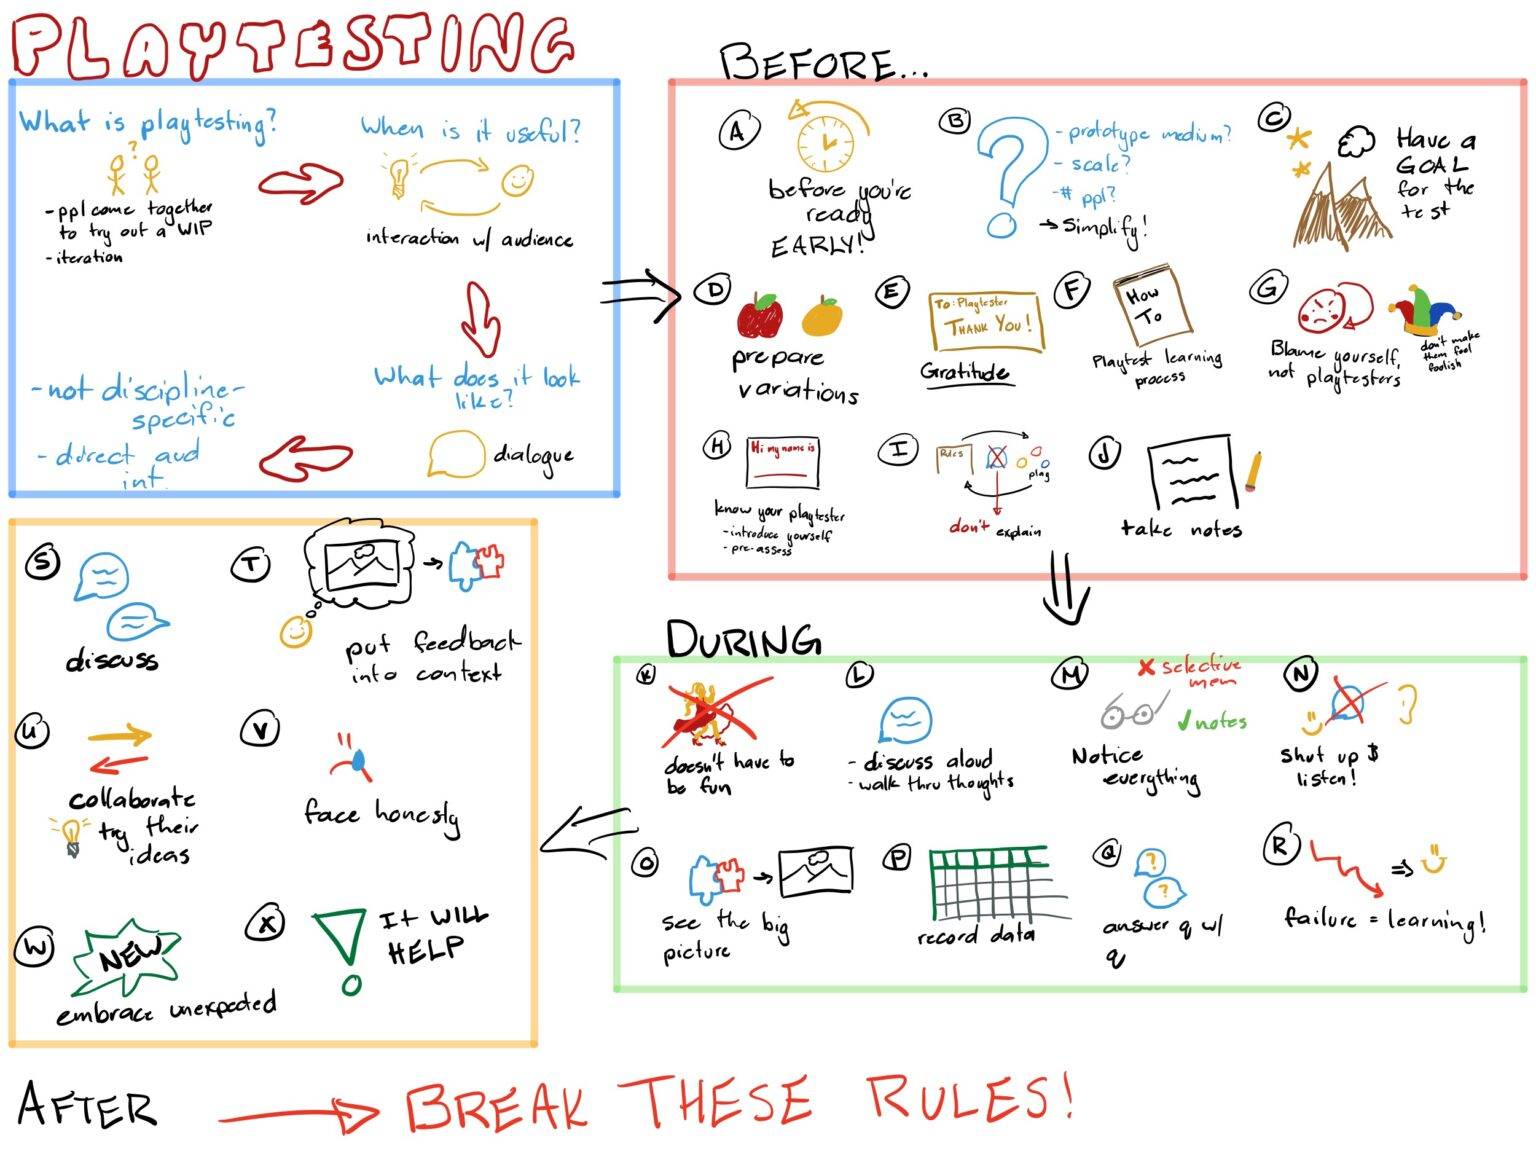 PLAYTESTING
What is playtesting?
?
- ppl come together
to try out a WIP
- iteration
When is it useful?
interaction w/ audience
What does it look
like?
dialogue
- not discipline-
specific
- direct aud
int.
BEFORE...
A
before you're
ready
EARLY!
B
?
- prototype medium?
- scale?
- # ppl?
→ Simplify!
C
Have a
GOAL
for the
test
D
prepare
variations
E
To: Playtester
THANK YOU!
Gratitude
F
How
To
Playtest learning
process
G
Blame yourself,
not playtesters
don't make
them feel
foolish
H
Hi my name is
know your playtester
- introduce yourself
- pre-assess
I
Rules
play
don't explain
J
take notes
DURING
K
doesn't have to
be fun
L
- discuss aloud
- walk thru thoughts
M
x selective
mem
✓ notes
Notice
everything
N
shut up &
listen!
O
see the big
picture
P
record data
Q
?
?
answer q w/
q
R
failure = learning!
S
discuss
T
put feedback
into context
U
collaborate
try their
ideas
V
face honesly
W
NEW
embrace unexpected
X
It WILL
HELP
AFTER
BREAK THESE RULES!